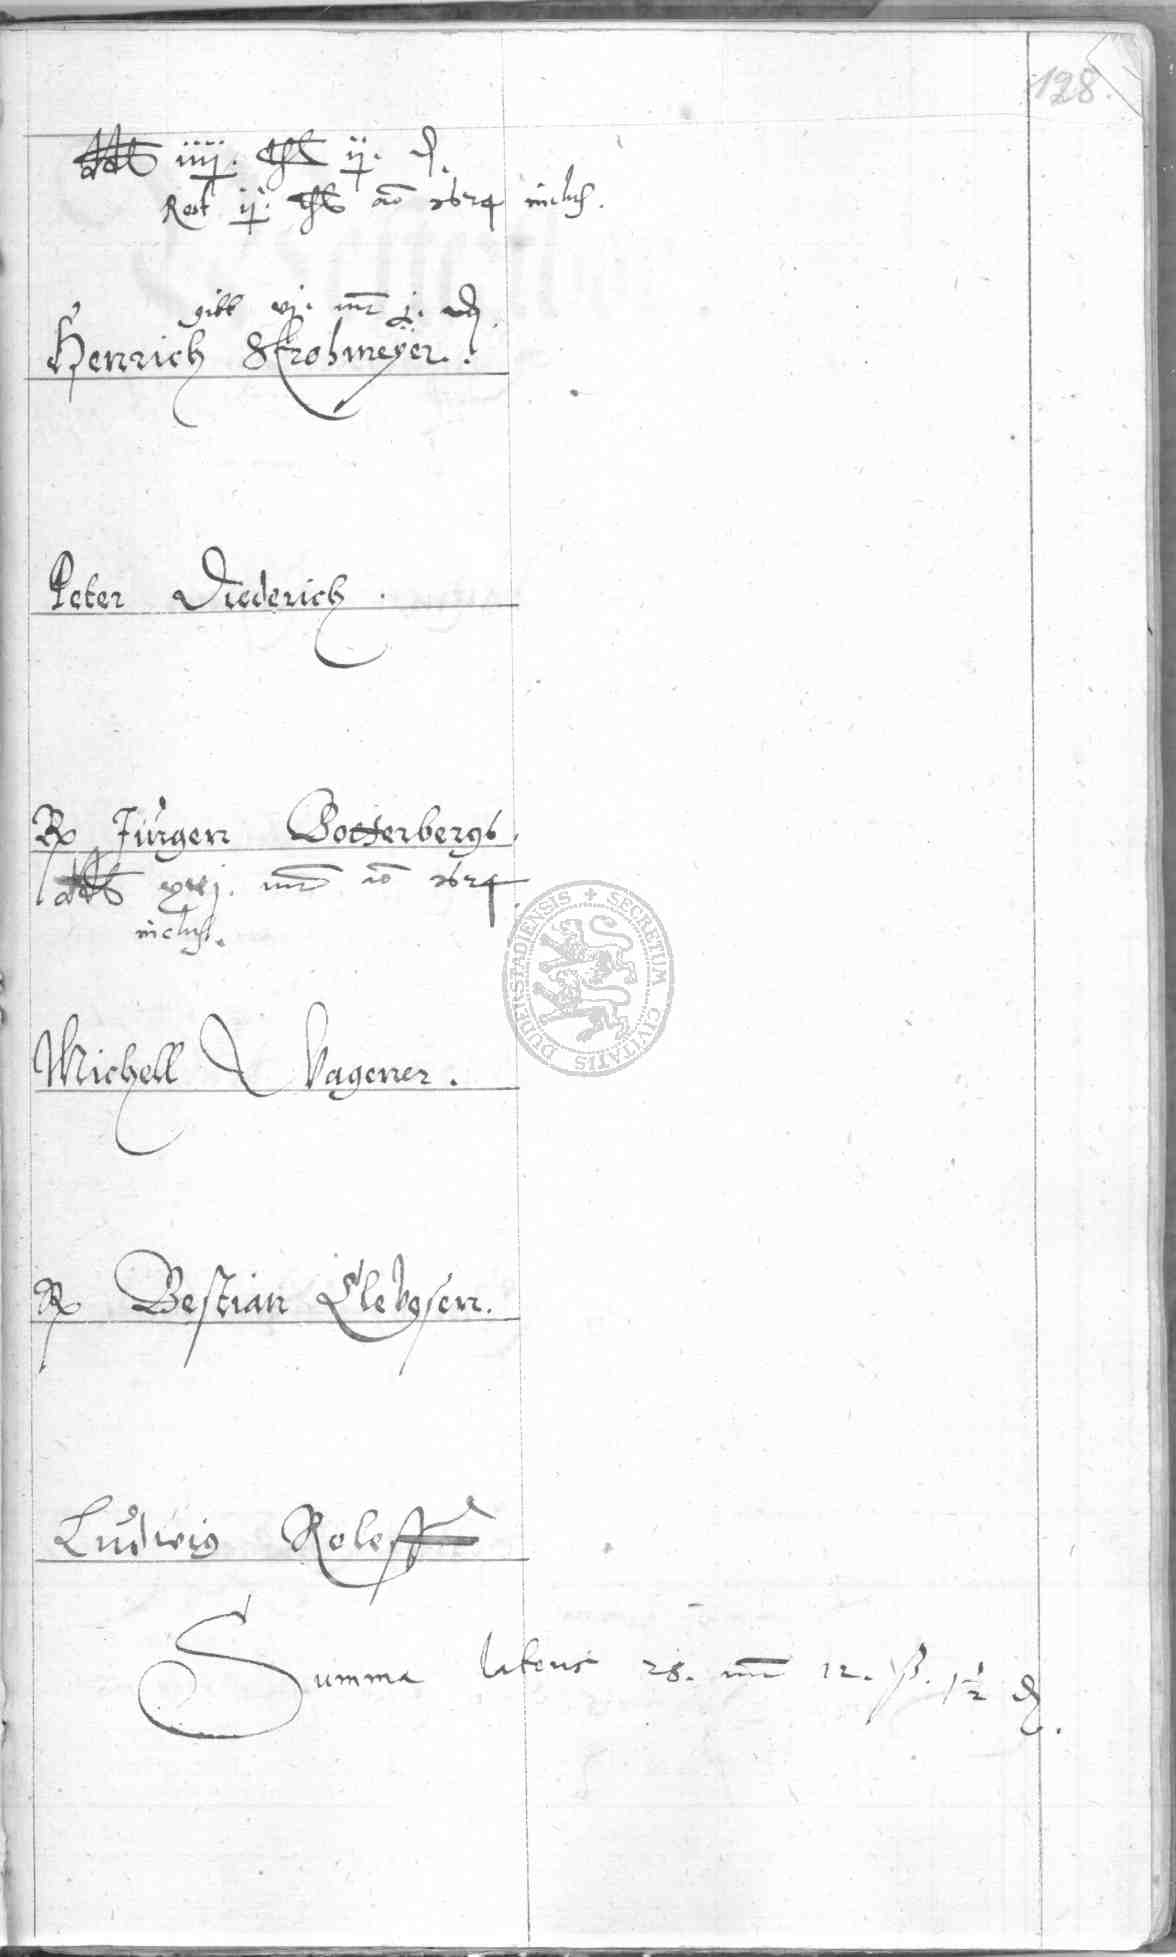 128.
dd iiij. thl ij. d.
Rest ij. thl ao 1624 inclus.
gibt vj. mr j. d.
Henrich Strohmeÿer.
Peter Diederich.
Rx Jürgen Botterbergs
dd mr ao 1624
inclus.
Michell Wagener.
Rx Bestian Elevesen.
Ludwig Roleff
Summa lateris 28. mr 12. ß. 1½ d.
DUDERSTADIENSIS + SECRETUM CIVITATIS